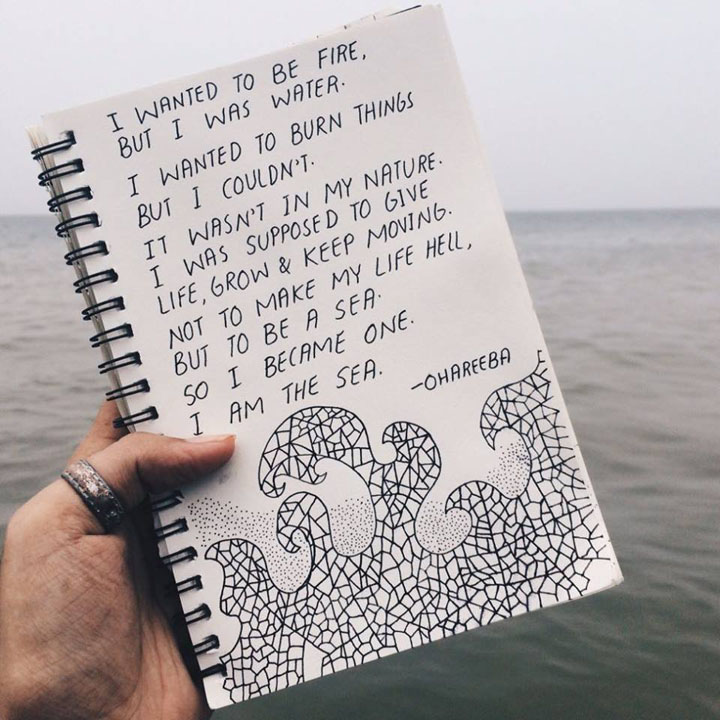 I WANTED TO BE FIRE,
BUT I WAS WATER.
I WANTED TO BURN THINGS
BUT I COULDN'T.
IT WASN'T IN MY NATURE.
I WAS SUPPOSED TO GIVE
LIFE, GROW & KEEP MOVING.
NOT TO MAKE MY LIFE HELL,
BUT TO BE A SEA.
SO I BECAME ONE.
I AM THE SEA.
-OHAREEBA